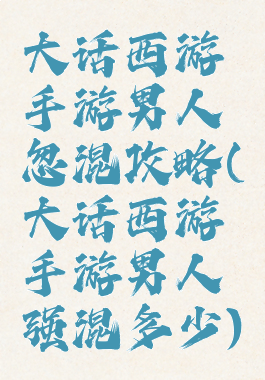 大话西游
手游男人
忽混攻略(
大话西游
手游男人
强混多少)